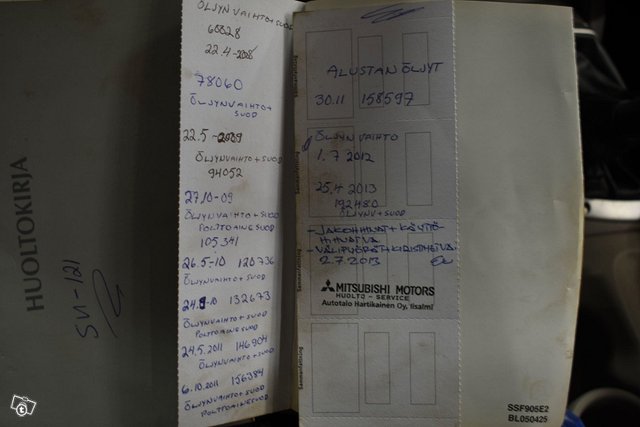 HUOLTOKIRJA
ÖLJYNVAIHTO+SUOD
60828
22.4-2008
78060
ÖLJYNVAIHTO+
SUOD
22.5-2009
ÖLJYNVAIHTO+SUOD
94052
27.10-09
ÖLJYNVAIHTO+SUOD
POLTTOAINESUOD
105341
26.5-10 120736
ÖLJYNVAIHTO+SUOD
24.9-10 132673
ÖLJYNVAIHTO+SUOD
POLTTOAINESUOD
24.5.2011 146904
ÖLJYNVAIHTO+SUOD
6.10.2011 156384
ÖLJYNVAIHTO+SUOD
POLTTOAINESUOD
ALUSTAN ÖLJYT
30.11 158597
ÖLJYNVAIHTO
1.7 2012
25.4 2013
192480
ÖLJYNV+SUOD
-JAKOHIHNAT+KÄYTTÖ-
HIHNAT VA.
2.7 2013
MITSUBISHI MOTORS
HUOLTO - SERVICE
Autotalo Hartikainen Oy, Iisalmi
SSF905E2
BL050425